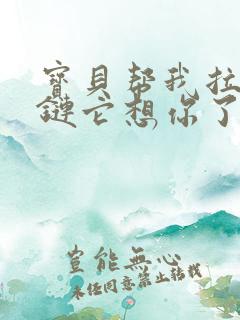 寶貝幫我拉
鏈它想你了
豈能無心
未经同意禁止转载